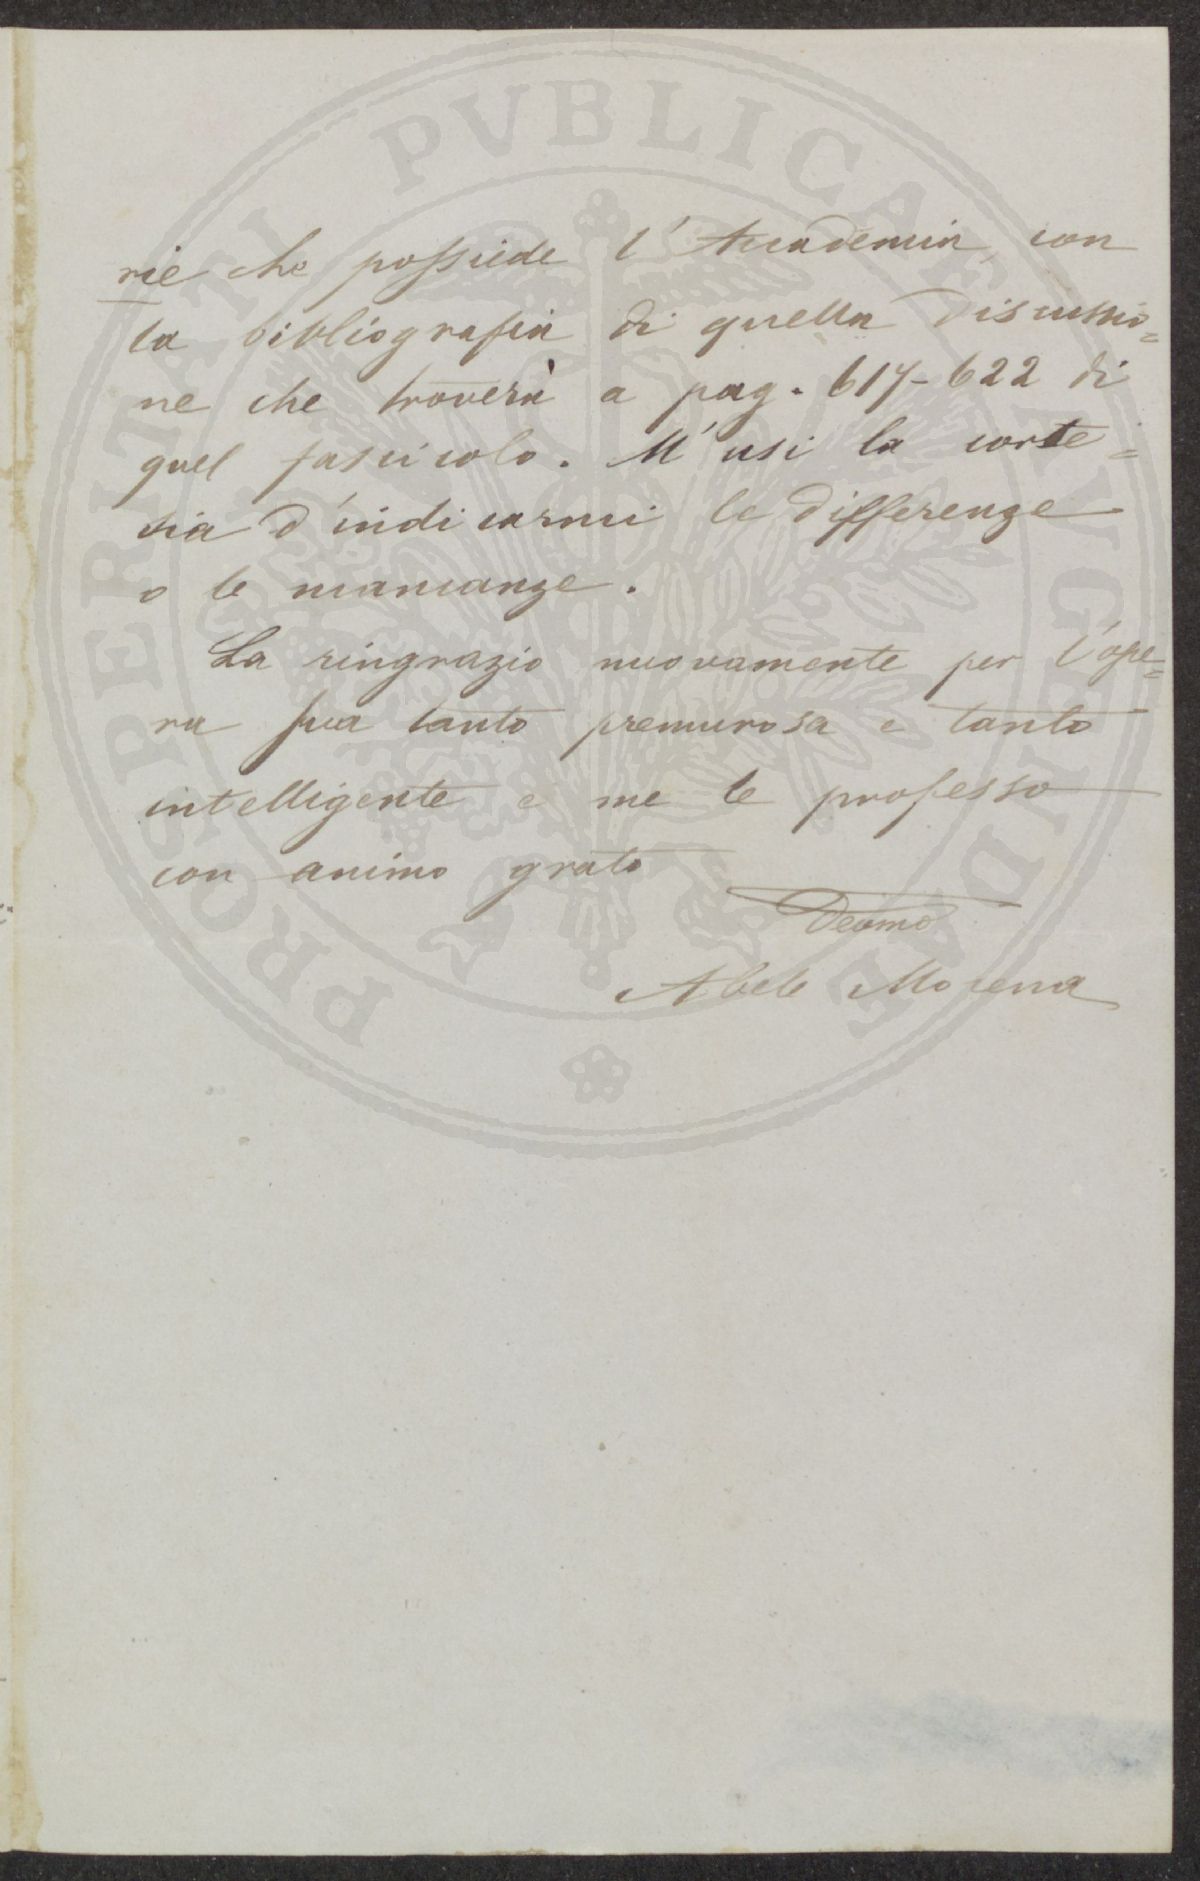 PROSPERITATI PVBLICAE AVGENDAE
rie che possiede l'Accademia, con
la bibliografia di quella discussio=
ne che troverà a pag. 617-622 di
quel fascicolo. M'usi la corte=
sia d'indicarmi le differenze
o le mancanze.
La ringrazio nuovamente per l'ope=
ra sua tanto premurosa e tanto
intelligente e me le professo
con animo grato
Devmo
Abele Morena